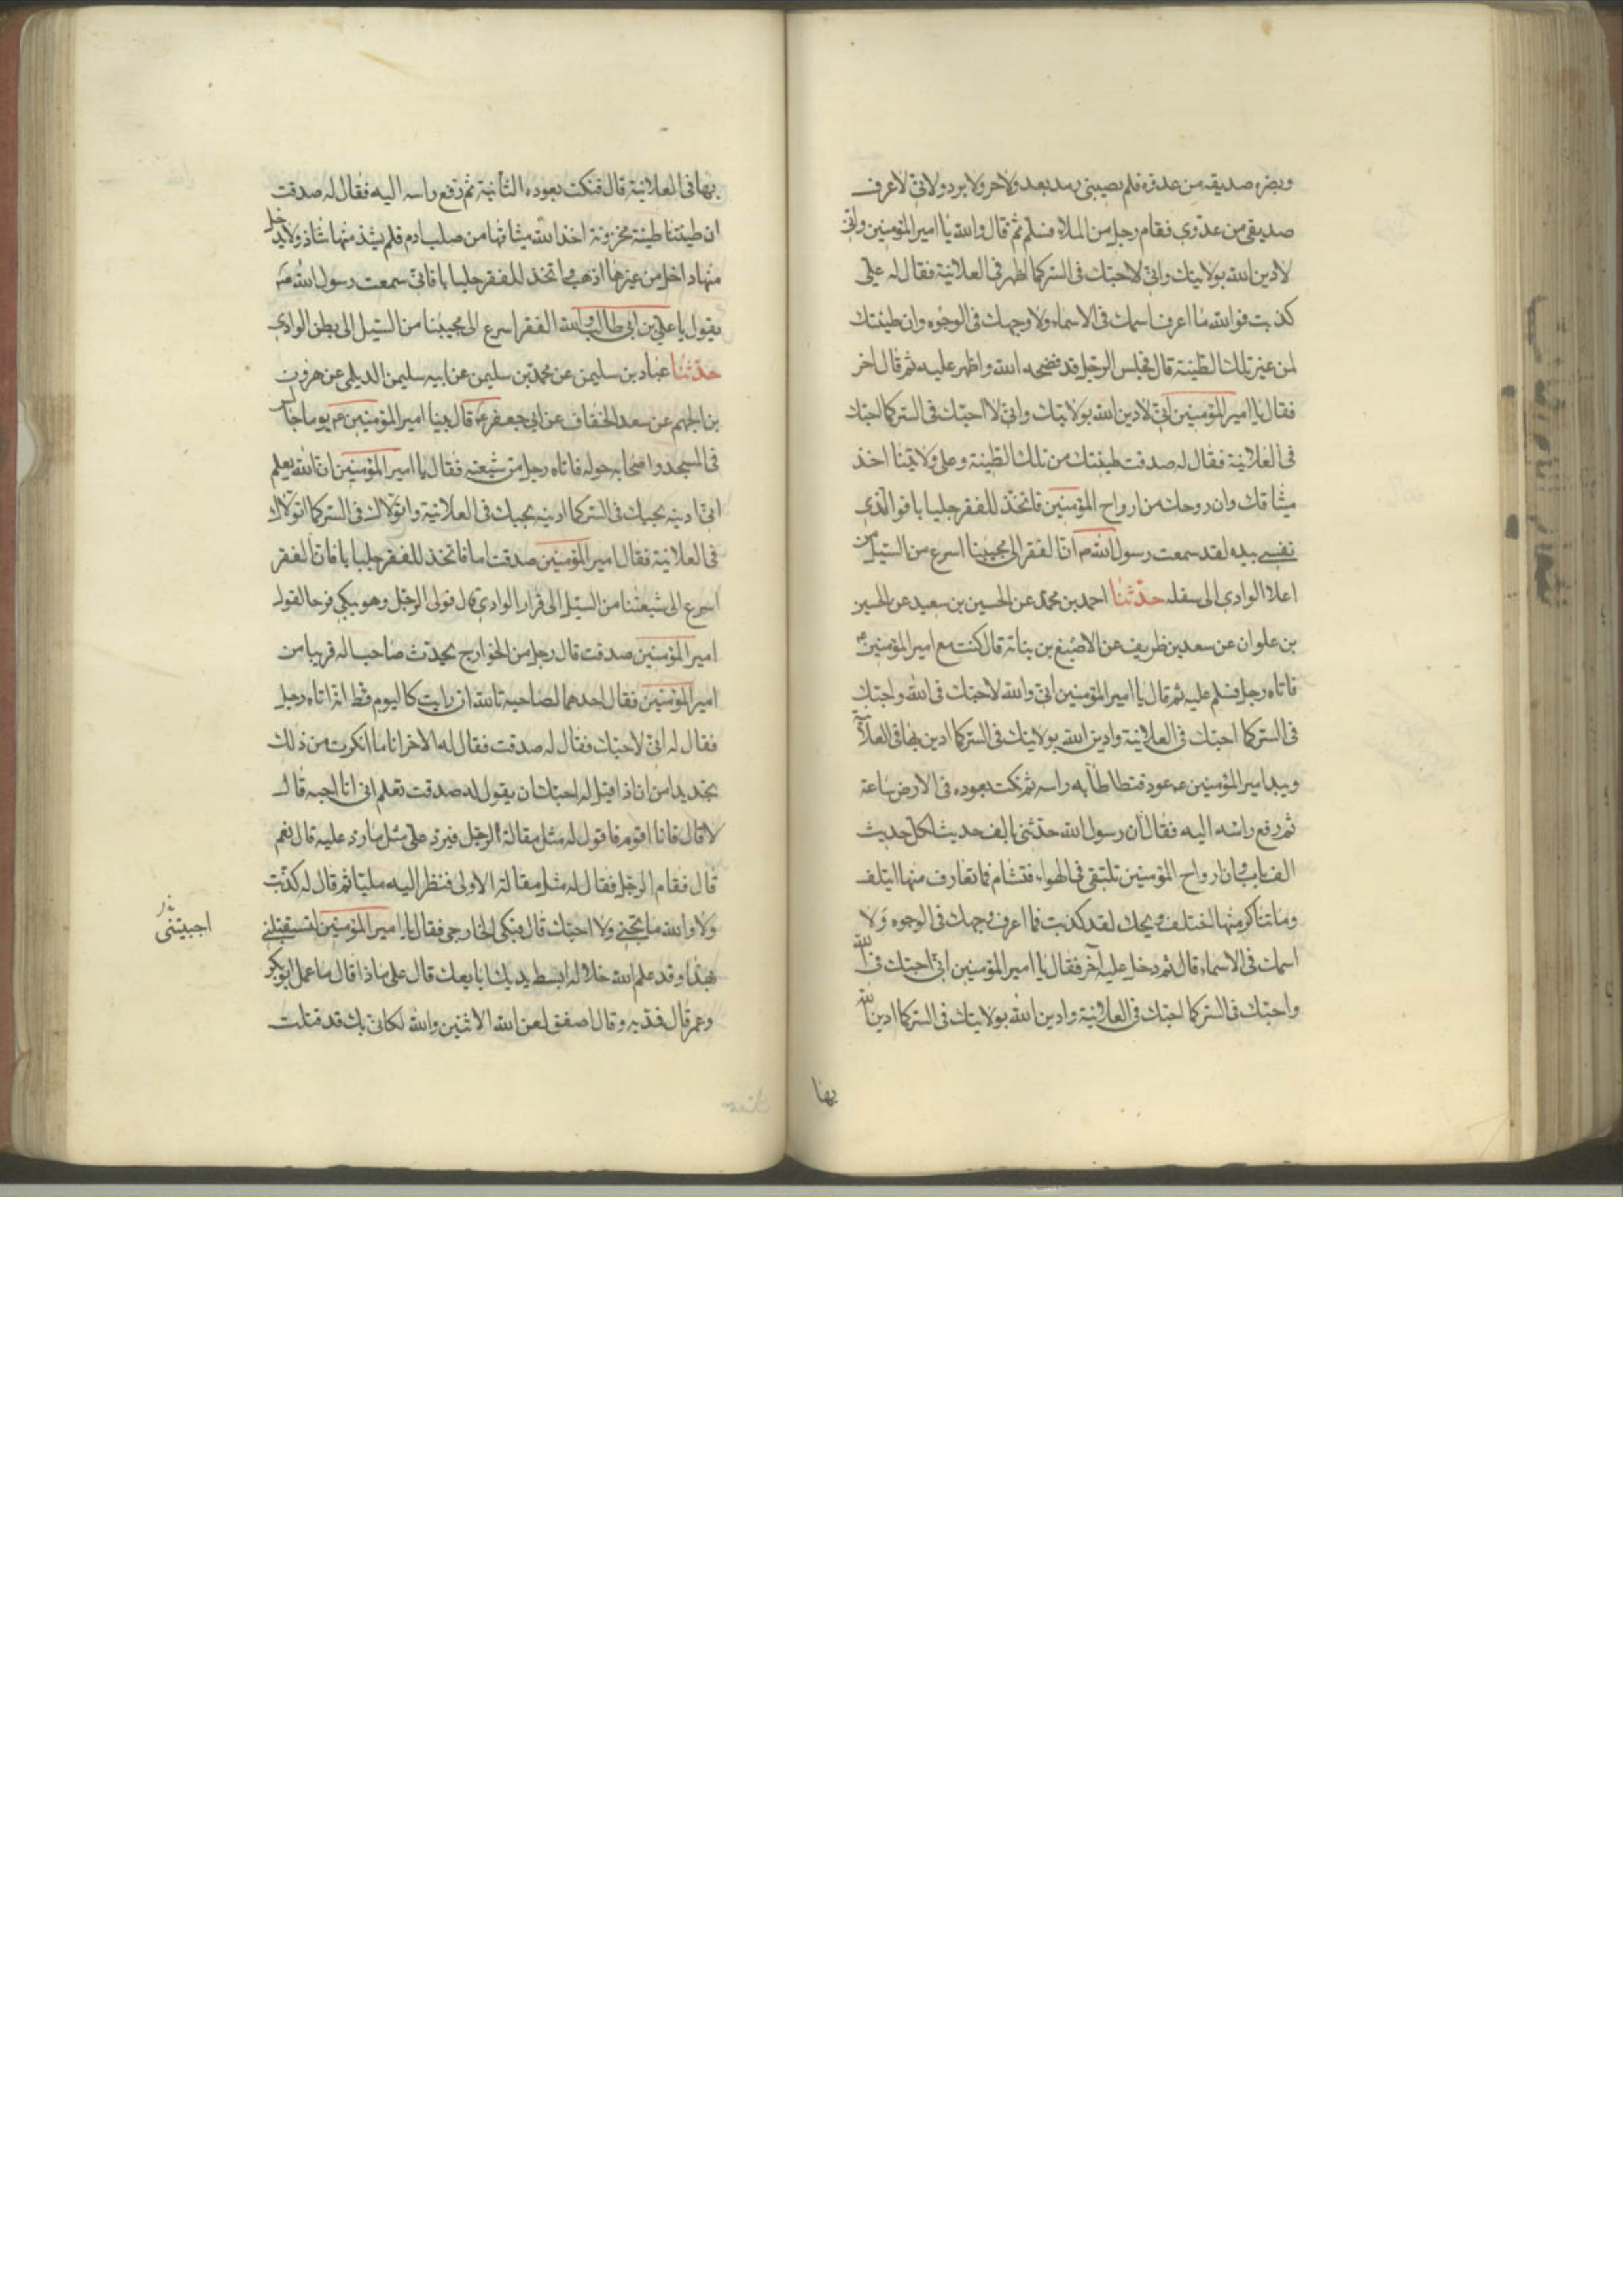 وبضره صديقه من عدوه فلم يصيبنى رمد بعد ولا حر ولا برد ولانى لاعرف
صديقى من عدوى فقام رجل من الملاء فسلم ثم قال والله يا امير المؤمنين وانى
لادين الله بولايتك وانى لاحبك فى السر كما اظهر فى العلانية فقال له على
كذبت فوالله ما اعرف اسمك فى الاسماء ولا وجهك فى الوجوه وان طينتك
لمن غير تلك الطينة قال فجلس الرجل قد فضحه الله واظهر عليه ثم قال اخر
فقال يا امير المؤمنين انى لادين الله بولايتك وانى لا احبك فى السر كما احبك
فى العلانية فقال له صدقت طينتك من تلك الطينة وعلى ولايتنا اخذ
ميثاقك وان روحك من ارواح المؤمنين فاتخذ للفقر جلبابا فوالذى
نفسى بيده لقد سمعت رسول الله ص ان الفقر الى محبينا اسرع من السيل من
اعلا الوادى الى سفله حدثنا احمد بن محمد عن الحسين بن سعيد عن الحسين
بن علوان عن سعد بن ظريف عن الاصبغ بن بناتة قال كنت مع امير المؤمنين ع
فاتاه رجل فسلم عليه ثم قال يا امير المؤمنين انى والله لاحبك فى الله واحبك
فى السر كما احبك فى العلانية وادين الله بولايتك فى السر كما ادين بها فى العلانية
وبيد امير المؤمنين ع عود فتطاطأ به راسه ثم نكت بعوده فى الارض ساعة
ثم رفع راسه اليه فقال ان رسول الله حدثنى بالف حديث لكل حديث
الف باب وان ارواح المؤمنين تلتقى فى الهواء فتشام فما تعارف منها ائتلف
وما تناكر منها اختلف ويحك لقد كذبت فما اعرف وجهك فى الوجوه ولا
اسمك فى الاسماء قال ثم دخل عليه آخر فقال يا امير المؤمنين انى احبك فى الله
واحبك فى السر كما احبك فى العلانية وادين الله بولايتك فى السر كما ادين الله
بها
بها فى العلانية قال فنكت بعوده الثانية ثم رفع راسه اليه فقال له صدقت
ان طينتنا طينة مخزونة اخذ الله ميثاقها من صلب ادم فلم يشذ منها شاذ ولا يدخل
منها داخل من غيرها اذهب واتخذ للفقر جلبابا فانى سمعت رسول الله ص
يقول يا على بن ابى طالب والله الفقر اسرع الى محبينا من السيل الى بطن الوادى
حدثنا عباد بن سليمن عن محمد بن سليمن عن ابيه سليمن الديلمى عن هرون
بن الجهم عن سعد الخفاف عن ابى جعفر ع قال بينا امير المؤمنين ع يوما جالس
فى المسجد واصحابه حوله فاتاه رجل من شيعته فقال يا امير المؤمنين ان الله يعلم
انى ادينه بحبك فى السر كما ادينه بحبك فى العلانية واتولاك فى السر كما اتولاك
فى العلانية فقال امير المؤمنين صدقت اما فاتخذ للفقر جلبابا فان الفقر
اسرع الى شيعتنا من السيل الى قرار الوادى قال فولى الرجل وهو يبكى فرحا لقول
امير المؤمنين صدقت قال رجل من الخوارج يحدث صاحبا له قريبا من
امير المؤمنين فقال احدهما لصاحبه تالله ان رايت كاليوم قط انه اتاه رجل
فقال له انى لاحبك فقال له صدقت فقال له الاخر انا ما انكرت من ذلك
يجد بدا من ان اذا قيل له احبك ان يقول له صدقت تعلم انى انا احبه قال
لا قال فانا اقوم فاقول له مثل مقالة الرجل فيرد على مثل ما رد عليه قال نعم
قال فقام الرجل فقال له مثل مقالة الاولى فنظر اليه مليا ثم قال له كذبت
ولا والله ما تحبنى ولا احبك قال فبكى الخارجى فقال يا امير المؤمنين لتستقبلنى
بهذا وقد علم الله خلافه ابسط يديك ابايعك قال على ماذا قال ما عمل ابو بكر
وعمر قال فمد يده وقال اصفق لعن الله الاثنين والله لكانى بك قد قتلت
اجبيتنى